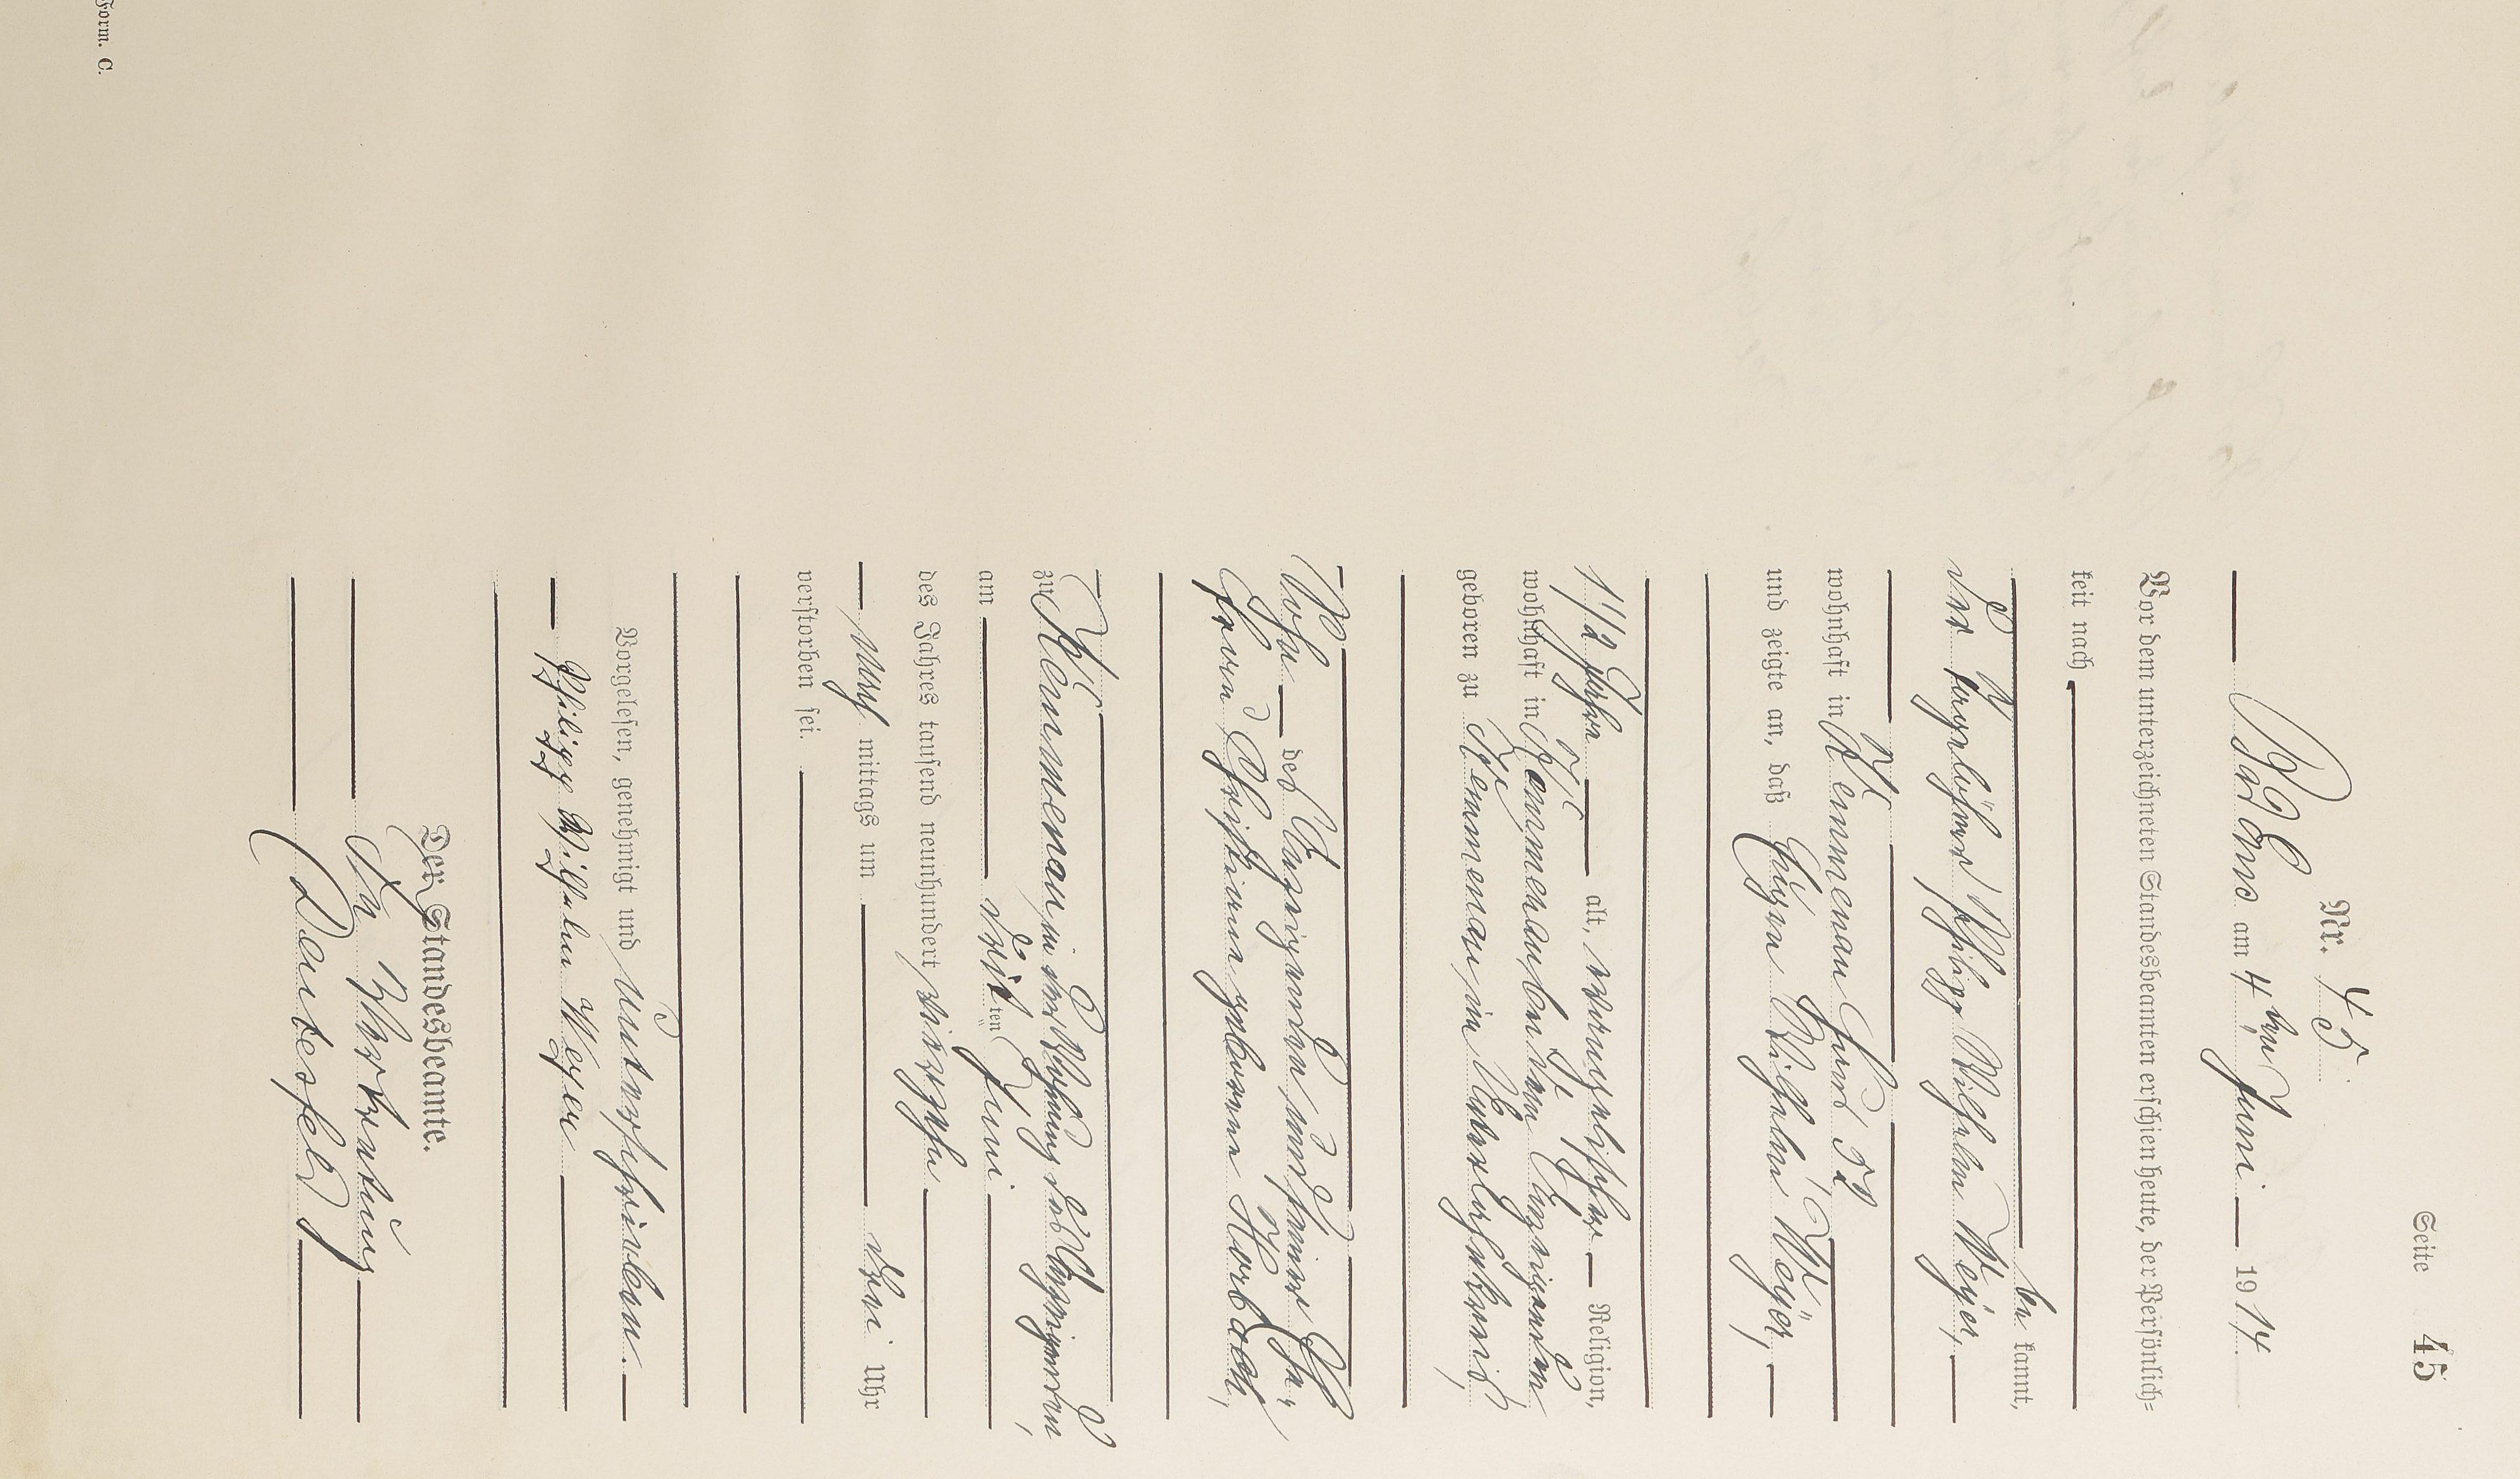 Seite 45
Nr. 45
Bad Ems am 4 ten Juni 1914
Vor dem unterzeichneten Standesbeamten erschien heute, der Persönlich-
keit nach
be kannt,
der Tagelöhner Philipp Wilhelm Meyer,
wohnhaft in Kemmenau Haus 52
und zeigte an, daß Eugen Wilhelm Meyer,
1 1/2 Jahre alt, evangelischer Religion,
wohnhaft in Kemmenau, bei dem Anzeigenden
geboren zu Kemmenau, im Unterlahnkreis,
Sohn des Anzeigenden, und seiner Ehe-
frau Christiane geborene Horbach,
zu Kemmenau, in der Wohnung des Anzeigenden,
am dritten Juni
des Jahres tausend neunhundert vierzehn
nach mittags um drei Uhr
verstorben sei.
Vorgelesen, genehmigt und unterschrieben.
Philipp Wilhelm Meyer
Der Standesbeamte.
In Vertretung